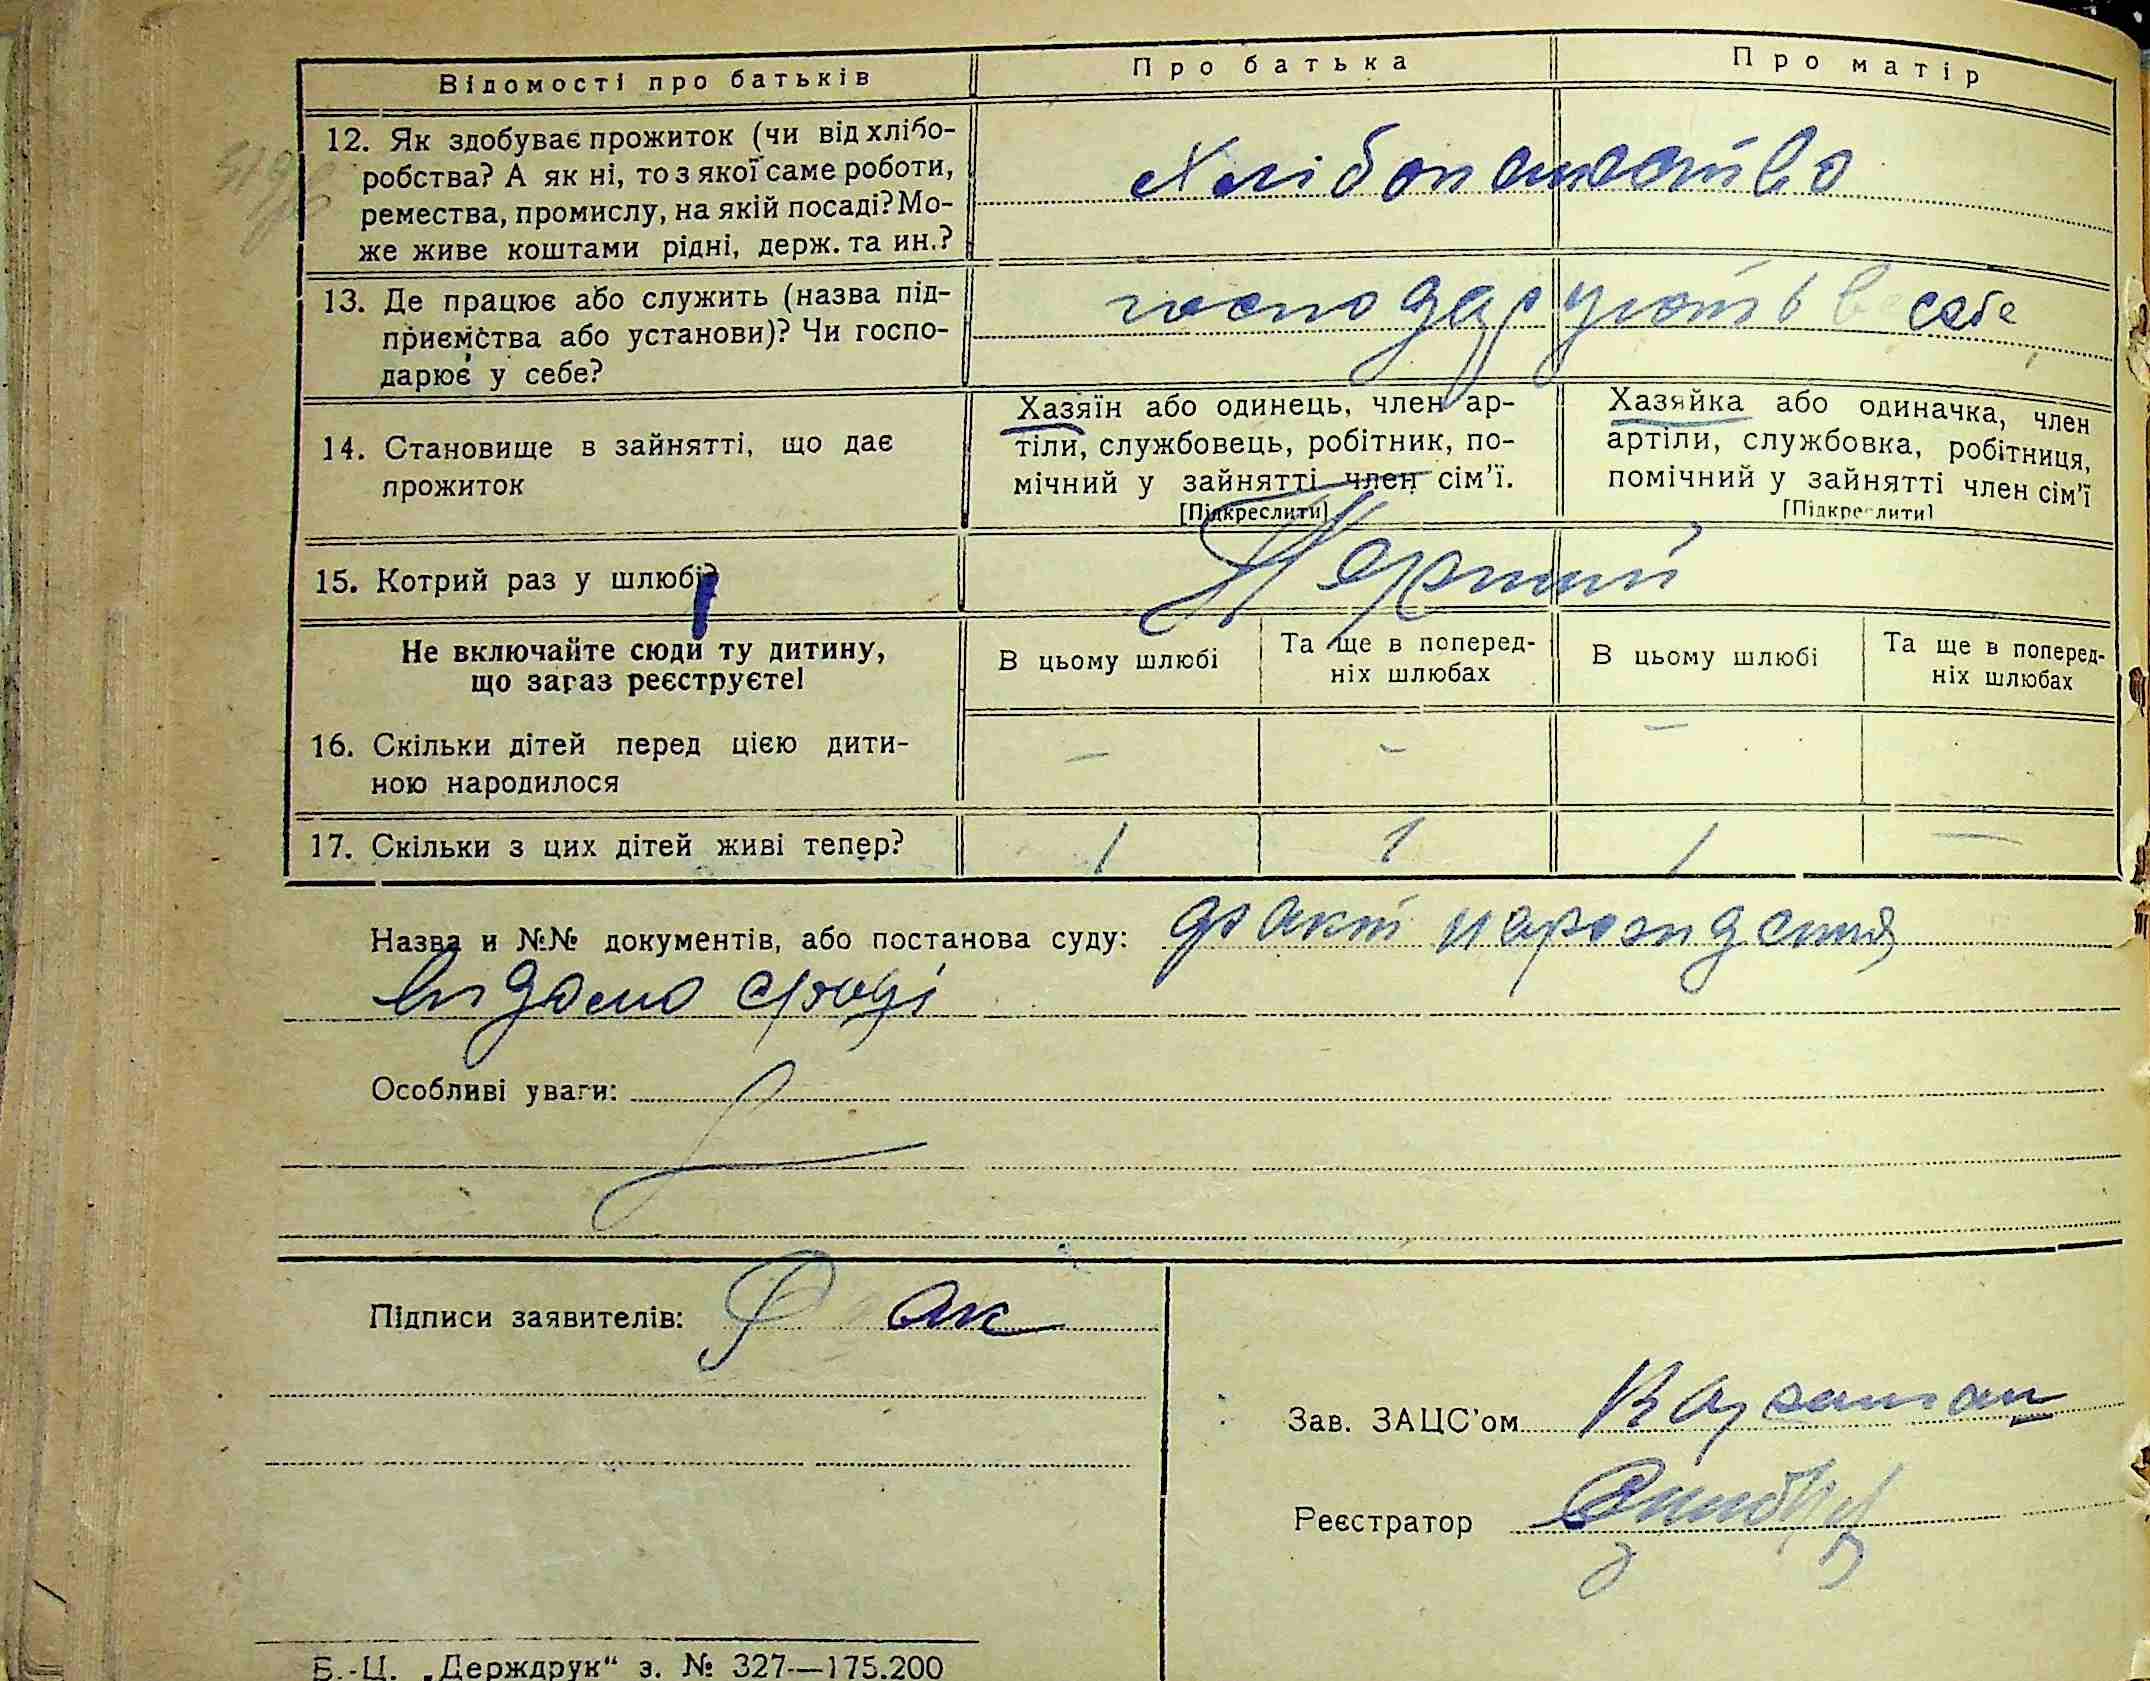 Відомості про батьків
Про батька
Про матір
12. Як здобуває прожиток (чи від хлібо-
робства? А як ні, то з якої саме роботи,
ремества, промислу, на якій посаді? Мо-
же живе коштами рідні, держ. та ин.?
Хлібопашство
13. Де працює або служить (назва під-
приємства або установи)? Чи госпо-
дарює у себе?
господарують в себе
14. Становище в зайнятті, що дає
прожиток
Хазяїн або одинець, член ар-
тіли, службовець, робітник, по-
мічний у зайнятті член сім'ї.
[Підкреслити]
Хазяйка або одиначка, член
артіли, службовка, робітниця,
помічний у зайнятті член сім'ї
[Підкреслити]
15. Котрий раз у шлюбі?
Перший
Не включайте сюди ту дитину,
що зараз реєструєте!
В цьому шлюбі
Та ще в поперед-
ніх шлюбах
В цьому шлюбі
Та ще в поперед-
ніх шлюбах
16. Скільки дітей перед цією дити-
ною народилося
– – –
17. Скільки з цих дітей живі тепер?
1 1 1 —
Назва и №№ документів, або постанова суду: факт народження
видано
Особливі уваги:
Підписи заявителів:
Зав. ЗАЦС'ом
Реєстратор
Б.-Ц. „Держдрук“ з. № 327—175.200